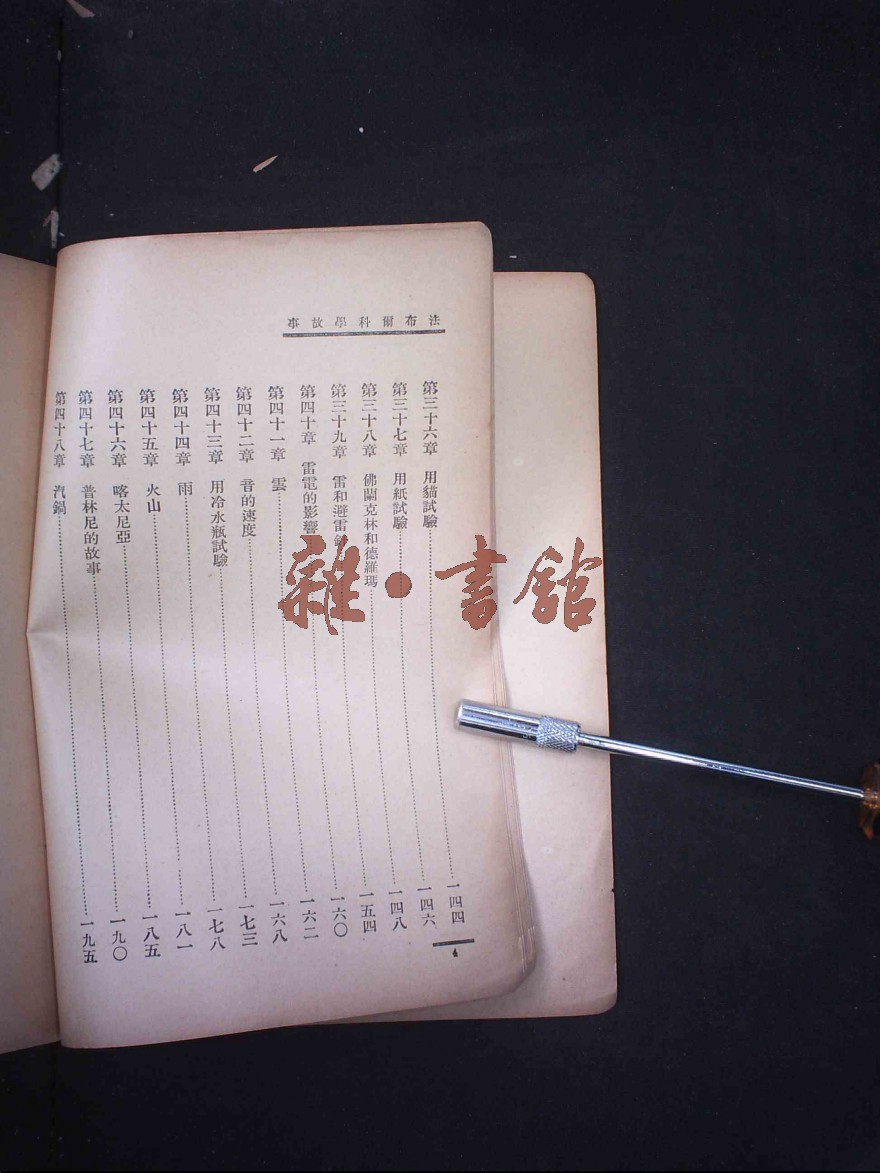 法布爾科學故事
第三十六章 用貓試驗……一四四
第三十七章 用紙試驗……一四六
第三十八章 佛蘭克林和德羅瑪……一四八
第三十九章 雷和避雷……一五四
第四十章 雷電的影響……一六〇
第四十一章 雲……一六二
第四十二章 音的速度……一六八
第四十三章 用冷水瓶試驗……一七三
第四十四章 雨……一七八
第四十五章 火山……一八一
第四十六章 喀太尼亞……一八五
第四十七章 普林尼的故事……一九〇
第四十八章 汽鍋……一九五
4
雜·書館